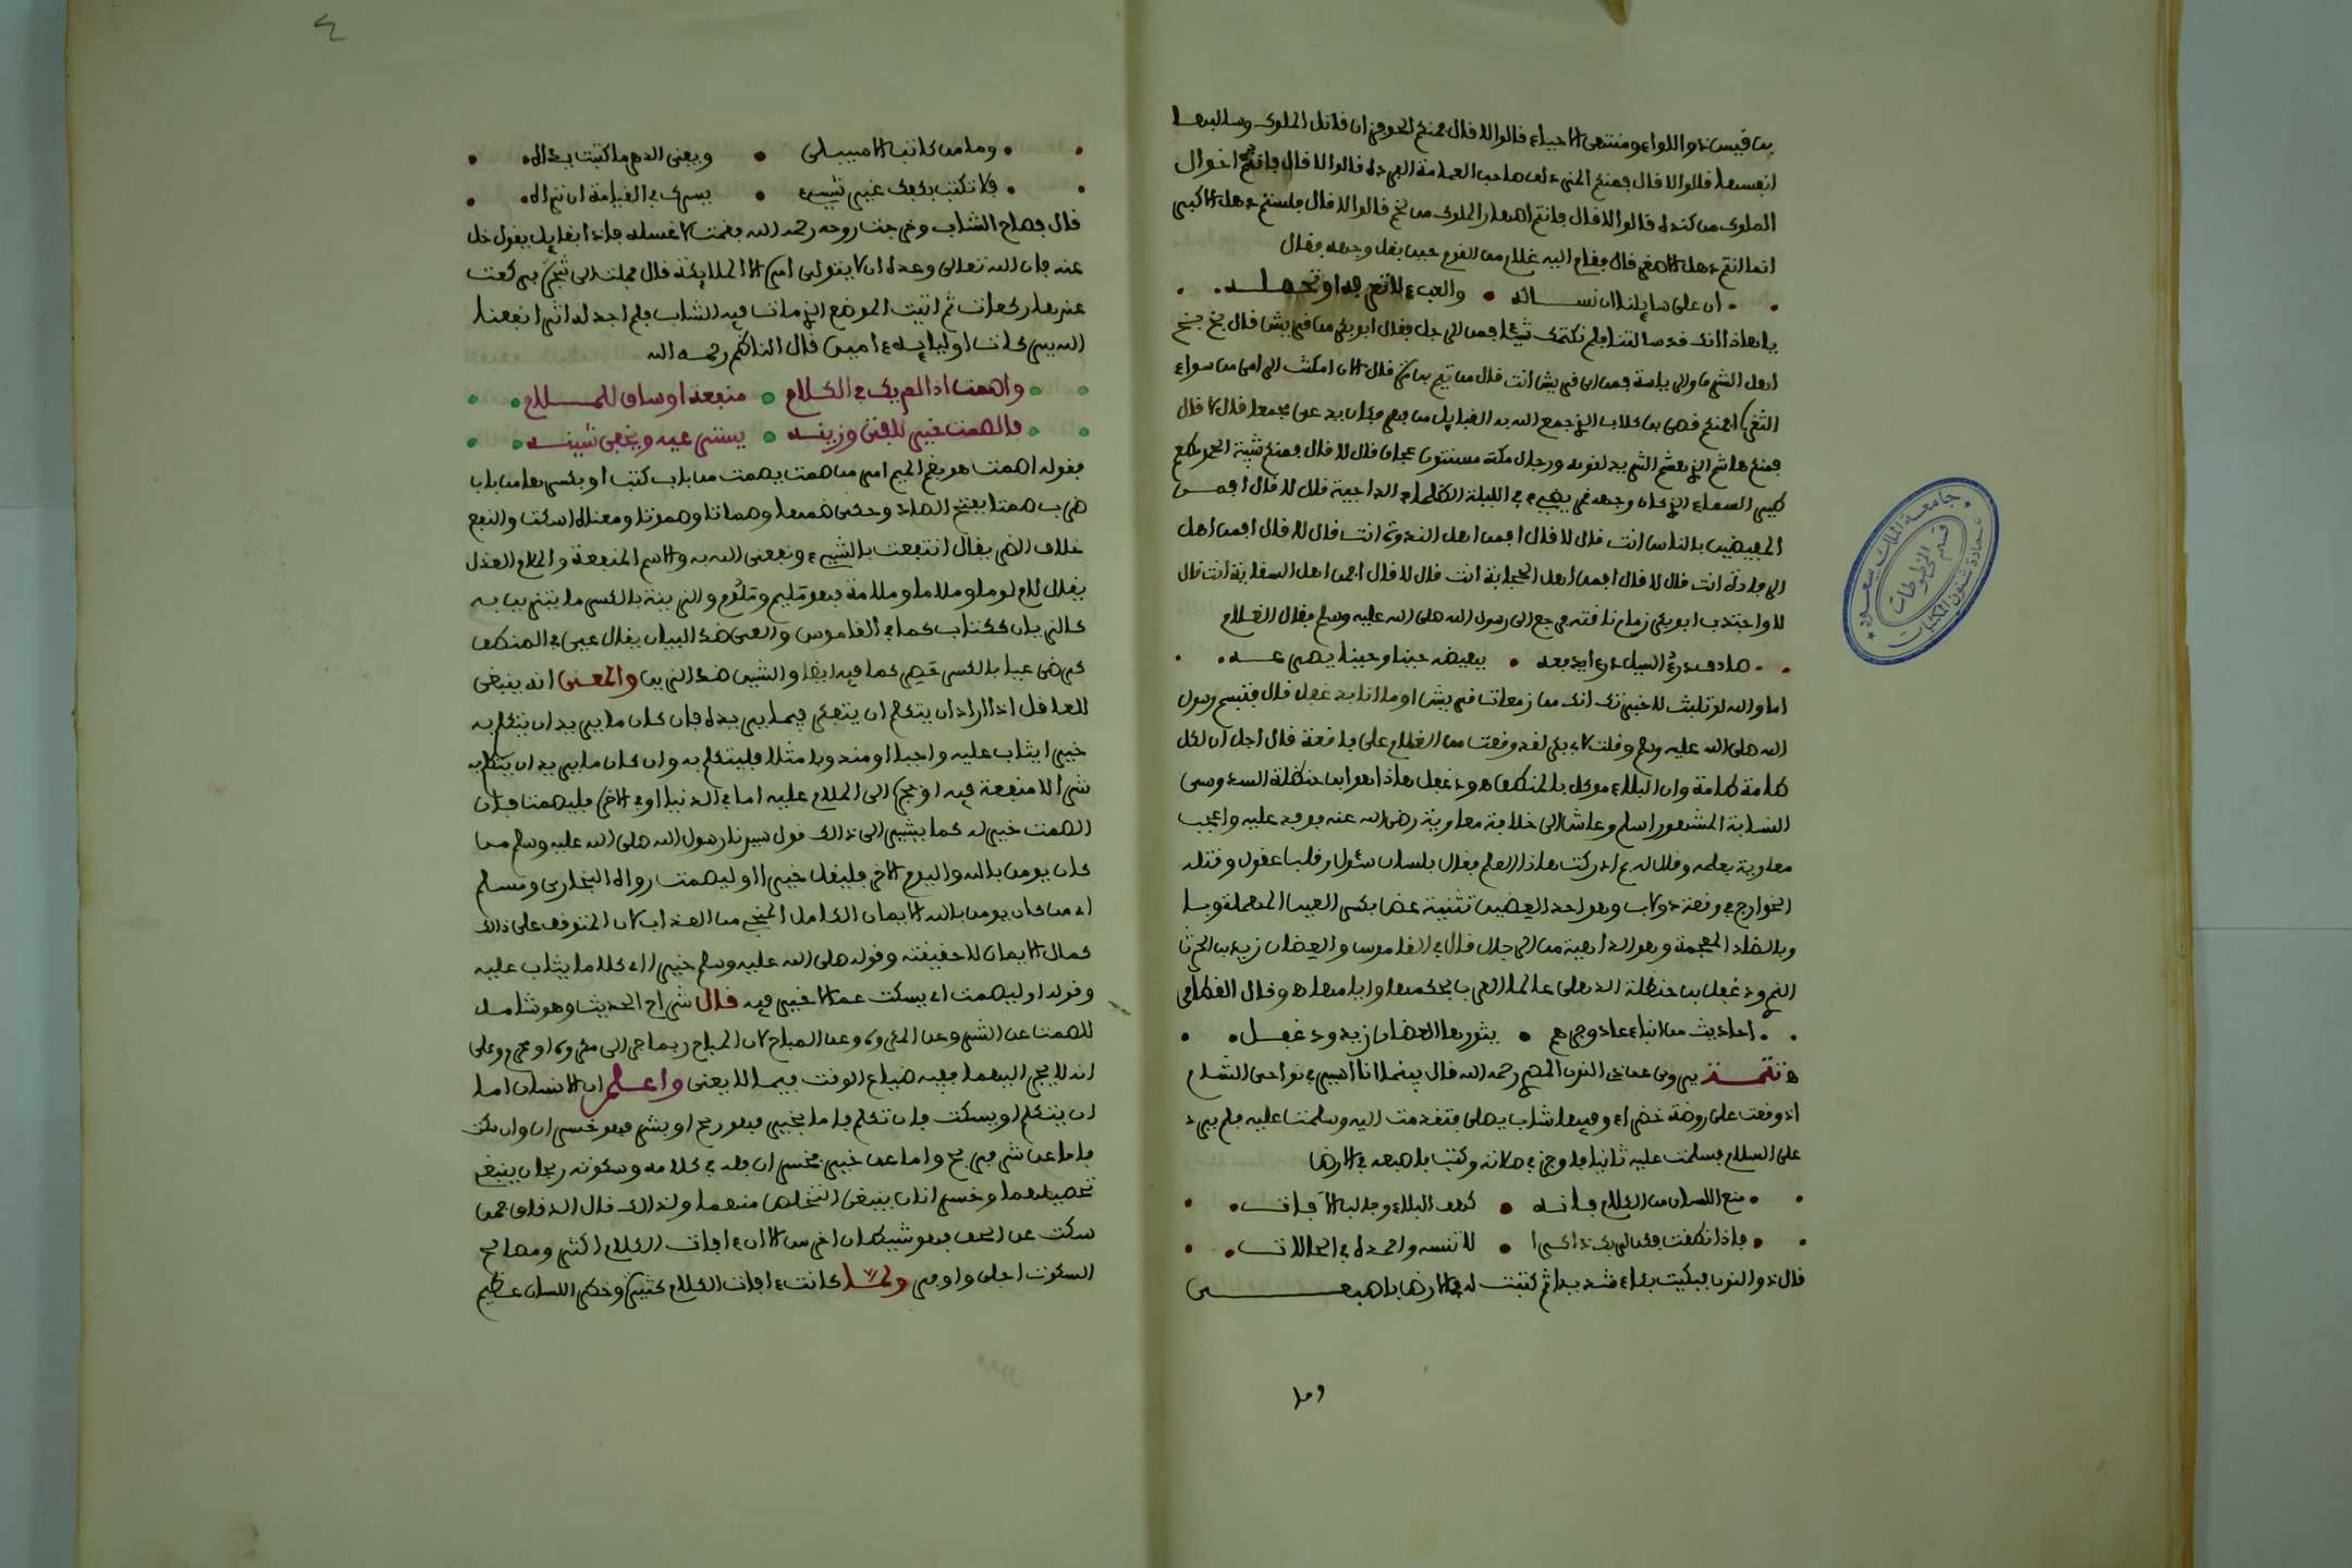 بن قيس ذو اللواء ومنتهى الاحياء قالوا لا قال فمنكم الحوفزان قاتل الملوك وسالبها
انفسها قالوا لا قال فمنكم المزدلف صاحب العمامة الفردة قالوا لا قال فانتم اخوال
الملوك من كندة قالوا لا قال فانتم اصهار الملوك من لخم قالوا لا قال فلستم ذهل الاكبر
انما انتم ذهل الاصغر قال فقام اليه غلام من القوم حين بقل وجهه فقال
ان على سايلنا ان نساله والعبء لا تعرفه او تحمله
يا هذا انك قد سالتنا فلم نكتمك شيئا فمن الرجل فقال ابو بكر من قريش قال بخ بخ
اهل الشرف والرياسة فمن اي قريش انت قال من تيم بن مرة قال الان امكنت الرامي من سواء
الثغرة افمنكم قصي بن كلاب الذي جمع الله به القبايل من فهر فكان يدعى مجمعا قال لا قال
فمنكم هاشم الذي هشم الثريد لقومه ورجال مكة مسنتون عجاف قال لا قال فمنكم شيبة الحمد مطعم
طير السماء الذي كان وجهه قمر يضيء في الليلة الظلماء الداجية قال لا قال افمن
المفيضين بالناس انت قال لا قال افمن اهل الندوة انت قال لا قال افمن اهل
الرفادة انت قال لا قال افمن اهل الحجابة انت قال لا قال افمن اهل السقاية انت قال
لا واجتذب ابو بكر زمام ناقته فرجع الى رسول الله صلى الله عليه وسلم فقال الغلام
صادف درء السيل درءا يدفعه يهيضه حينا وحينا يصدعه
اما والله لو تلبث لاخبرتك انك من زمعات قريش او ما انا بدغفل قال فتبسم رسول
الله صلى الله عليه وسلم وقلت لابي بكر لقد وقعت من الغلام على باقعة قال اجل ان لكل
طامة طامة وان البلاء موكل بالمنطق ه ودغفل هذا هو ابن حنظلة السدوسي
النسابة المشهور اسلم وعاش الى خلافة معاوية رضي الله عنه فوفد عليه واعجب
معاوية بعلمه وقال له بم ادركت هذا العلم فقال بلسان سئول وقلب عقول وقتله
الخوارج في وقعة دولاب وهو احد العضين تثنية عض بكسر العين المهملة وبا
وبالضاد المعجمة وهو الداهية من الرجال قال في القاموس والعضان زيد بن الحرث
النمري ودغفل بن حنظلة الذهلي عالما العرب بحكمها وايامها ه وقال القطامي
احاديث من انباء عاد وجرهم يثورها العضان زيد ودغفل
ه تتمة يروى عن ذي النون المصري رحمه الله قال بينما انا اسير في نواحي الشام
اذ وقعت على روضة خضراء وفيها شاب يصلي فتقدمت اليه وسلمت عليه فلم يرد
علي السلام فسلمت عليه ثانيا فاوجز في صلاته وكتب باصبعه في الارض
منع اللسان من الكلام فانه كهف البلاء وجالب الآفات
فاذا نطقت فكن لربك ذاكرا لا تنسه واحمده في الحالات
قال ذو النون فبكيت بكاء شديدا ثم كتبت له في الارض باصبعي
وما
وما من كاتب الا سيبلى ويبقى الدهر ما كتبت يداه
فلا تكتب بكفك غير شيء يسرك في القيامة ان تراه
قال فصاح الشاب وخرجت روحه رحمه الله فقمت لاغسله فاذا بقايل يقول خل
عنه فان الله تعالى وعده ان لا يتولى امره الا الملايكة قال فملت الى شجرة فركعت
عندها ركعات ثم اتيت الموضع الذي مات فيه الشاب فلم اجد له اثرا نفعنا
الله بسركات اوليايه ءامين قال الناظم رحمه الله
واصمت اذا لم يك في الكلام منفعة او ساق للملام
فالصمت خير للفتى وزينه يستر عيه ويخفي شينه
فقوله اصمت هو بضم الميم امر من صمت يصمت من باب كتب او بكسرها من باب
ضرب صمتا بفتح الصاد وحكى ضمها وصماتا وصموتا ومعناه اسكت والنفع
خلاف الضر يقال انتفعت بالشيء ونفعني الله به والاسم المنفعة والملام العذل
يقال لام لوما وملاما وملامة فهو مليم وملوم والزينة بالكسر ما يتزين به
كالزيان ككتاب كما في القاموس والعي ضد البيان يقال عيي في المنطق
كرضي عيا بالكسر حصر كما فيه ايضا والشين ضد الزين والمعنى انه ينبغي
للعاقل اذا اراد ان يتكلم ان يتفكر فيما يريده فان كان ما يريد ان يتكلم به
خيرا يثاب عليه واجبا او مندوبا مثلا فليتكلم به وان كان ما يريد ان يتكلم به
شرا لا منفعة فيه او يجر الى الملام عليه اما في الدنيا او في الاخرى فليصمت فان
الصمت خير له كما يشير الى ذالك قول سيدنا رسول الله صلى الله عليه وسلم من
كان يومن بالله واليوم الاخر فليقل خيرا او ليصمت رواه البخاري ومسلم
اي من كان يومن بالله الايمان الكامل المنجي من العذاب لان المتوقف على ذالك
كمال الايمان لا حقيقته وقوله صلى الله عليه وسلم خيرا اي كلاما يثاب عليه
وقوله او ليصمت اي يسكت عما لا خير فيه قال شراح الحديث وهو شامل
للصمت عن الشر وعن المكروه وعن المباح لان المباح ربما جر الى مكروه او محرم وعلى
انه لا يجر اليهما ففيه ضياع الوقت فيما لا يعني واعلم ان الانسان اما
ان يتكلم او يسكت فان تكلم فاما بخير فهو ربح او بشر فهو خسران وان سكت
فاما عن شر فربح واما عن خير فخسران فله في كلامه وسكوته ربحان ينبغي
تحصيلهما وخسرانان ينبغي التخلص منهما ولذالك قال الدقاق من
سكت عن الحق فهو شيطان اخرس الا ان ءافات الكلام اكثر ومصالح
السكوت اجلى واوفر ولما كانت ءافات الكلام كثيرة وخطر اللسان عظيم
جامعة الملك سعود
عمادة شؤون المكتبات
قسم المخطوطات